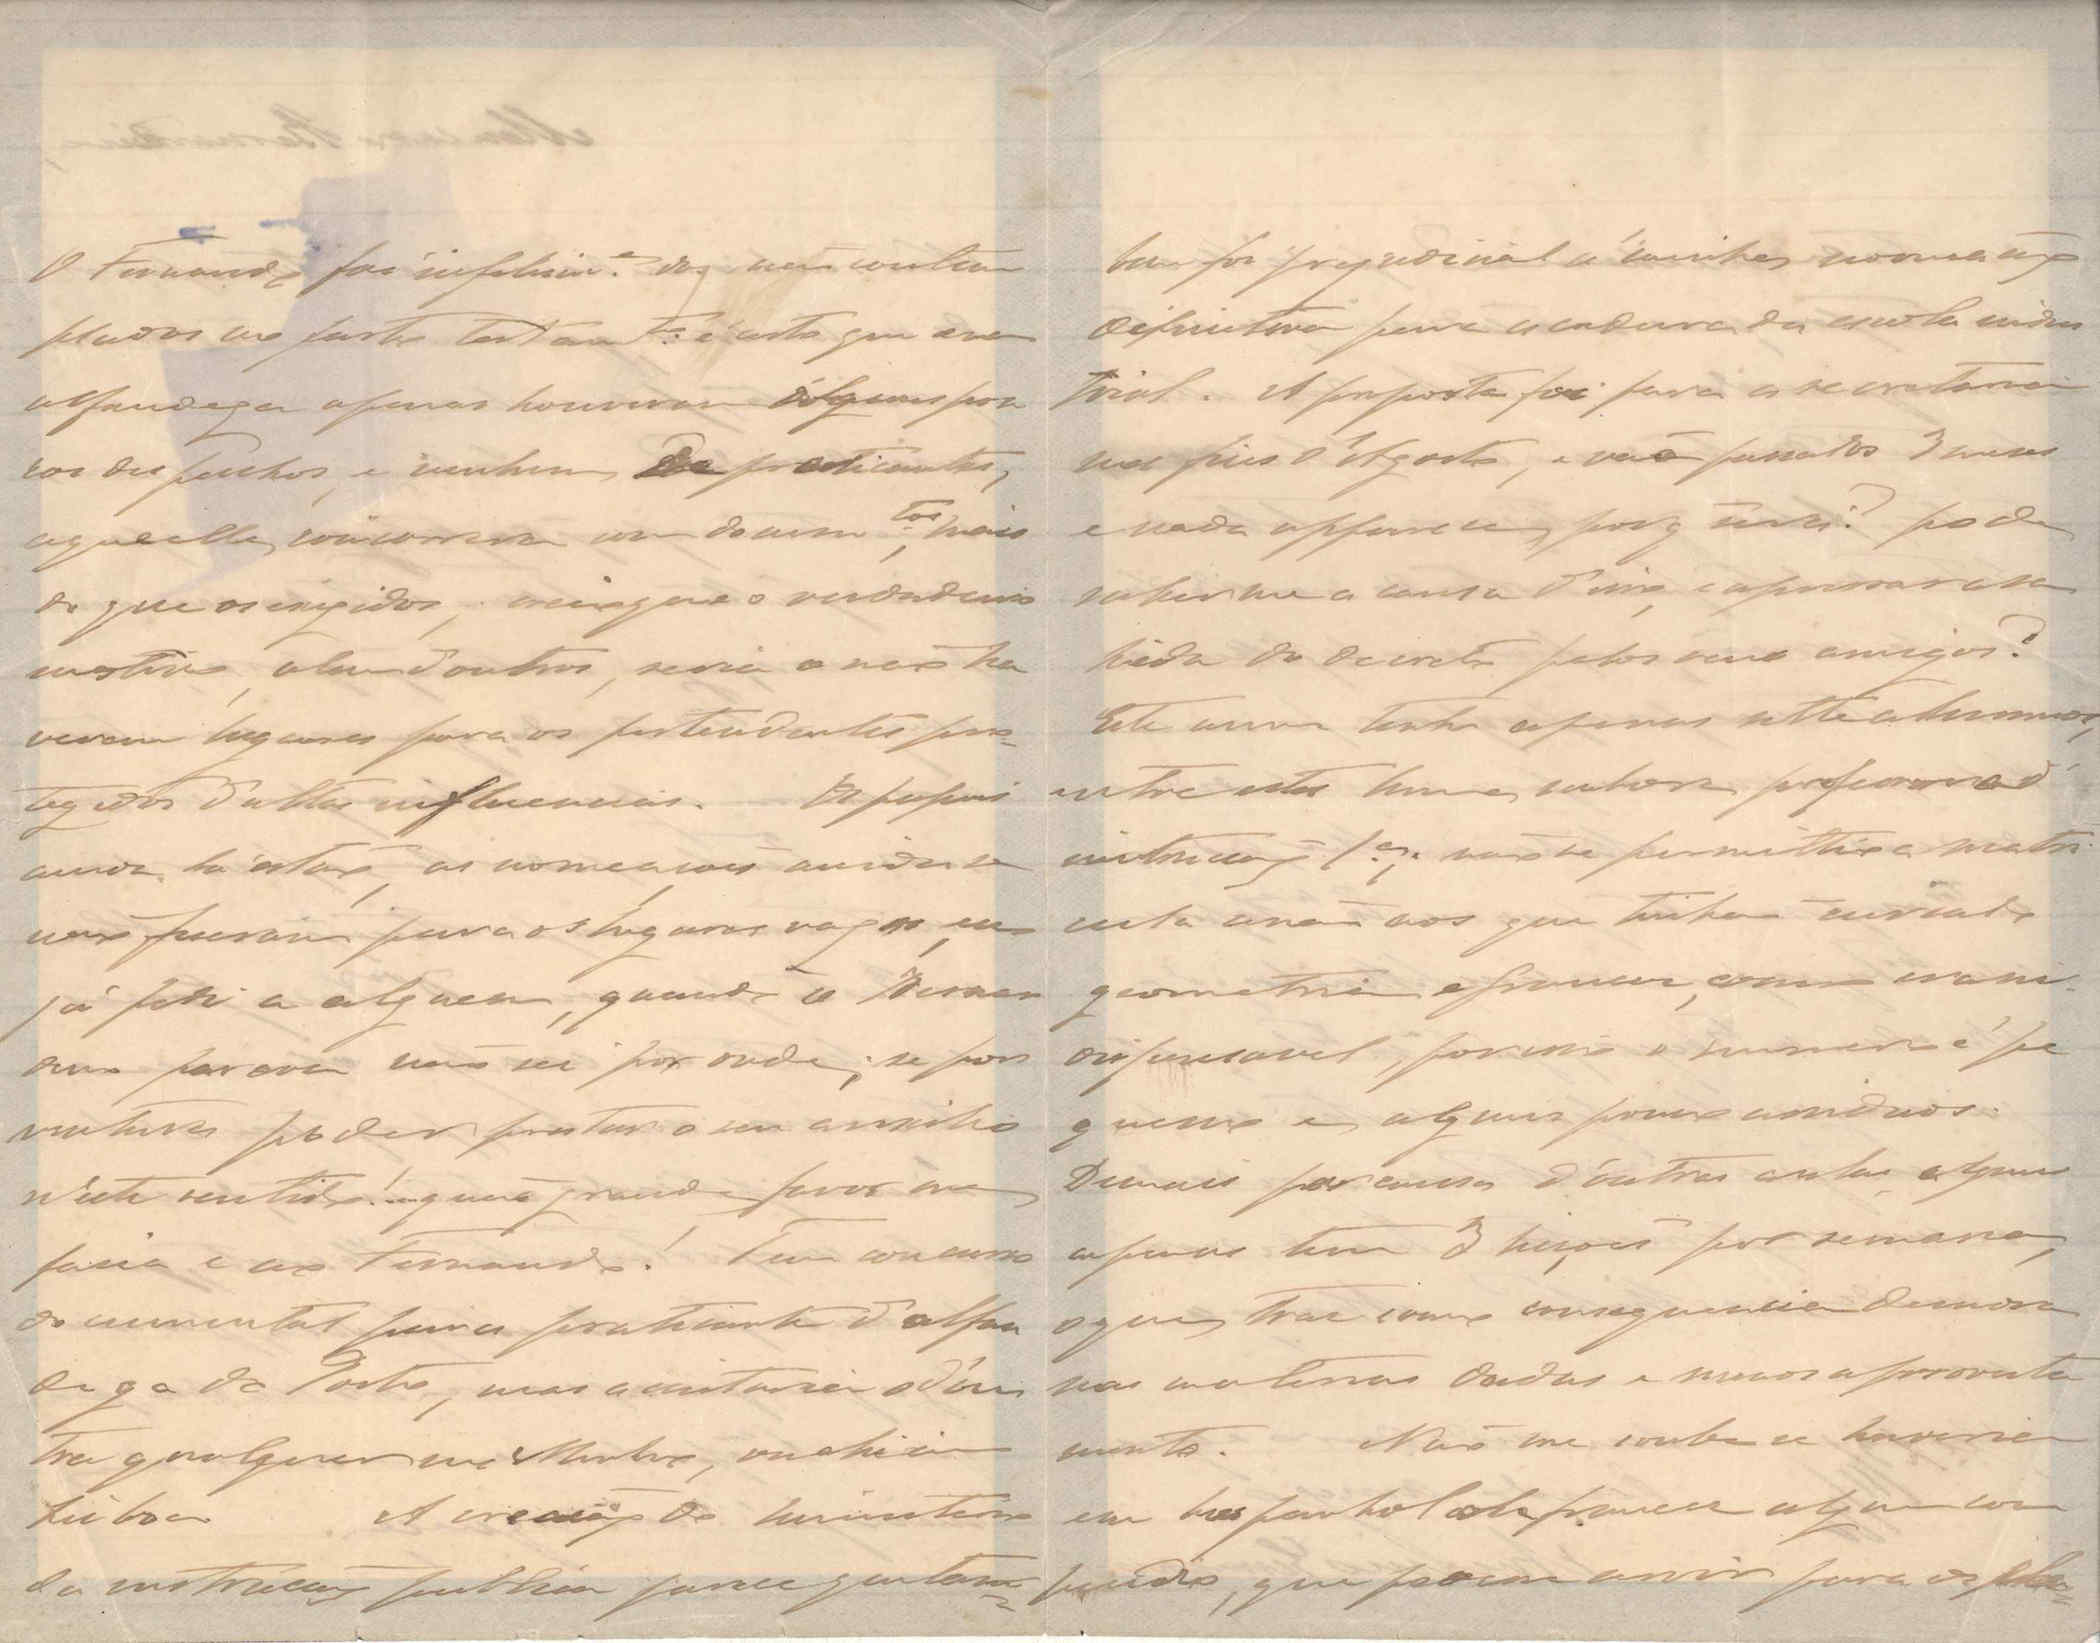 O Fernando foi infelicm.e dos não contem
plados no
alfandega apenas houveram alguns pou
cos despachos, e nenhum De praticantes,
aquelle concorrera com docum.tos mais
do que os exigidos, creio que o verdadeiro
motivo, alem d'outros, seria o não ha
verem lugares para os pertendentes pro-
tegidos d'altas influencias. Os papeis
ainda lá estão, as nomeações ainda se
não fizeram para os lugares vagos, eu
já pedi a alguem, quando o Bernar
dino parava não sei por onde; se por
ventura poder prestar o seu auxilio
n'este sentido! que grande favor me
fazia e ao Fernando! Tem concurso
documental para praticante d'alfan
dega do Porto, mas aceitaria d'ou
tra qualquer no Minho, ou ahi em
Lisboa A creação do ministerio
da instrucção publica parece que tam-
bem foi prejudicial á minha nomeação
definitiva para a cadeira da escola indus
trial. A proposta foi para a secretaria
nos fins d'Agosto, e vão passados 3 meses
e nada apparece, porq será? pode
saber-me a causa d'isso, e apressar a sa
hida do decreto pelos seus amigos?
Este anno tenho apenas sette alumnos,
entre estes huma senhora professora d'
instrucção 1.a; não se permittio a matri
cula senão aos que tinham cursado
geometria e francez, como era in-
dispensavel, por isso o numero é pe
queno e alguns pouco assiduos.
Demais por causa d'outras aulas alguns
apenas tem 3 lições por semana,
o que traz como consequencia demora
nas materias dadas e menos aproveita
mento. Não me soube se haveria
em hespanhol ou francez algum com
pendio, que possa servir para os